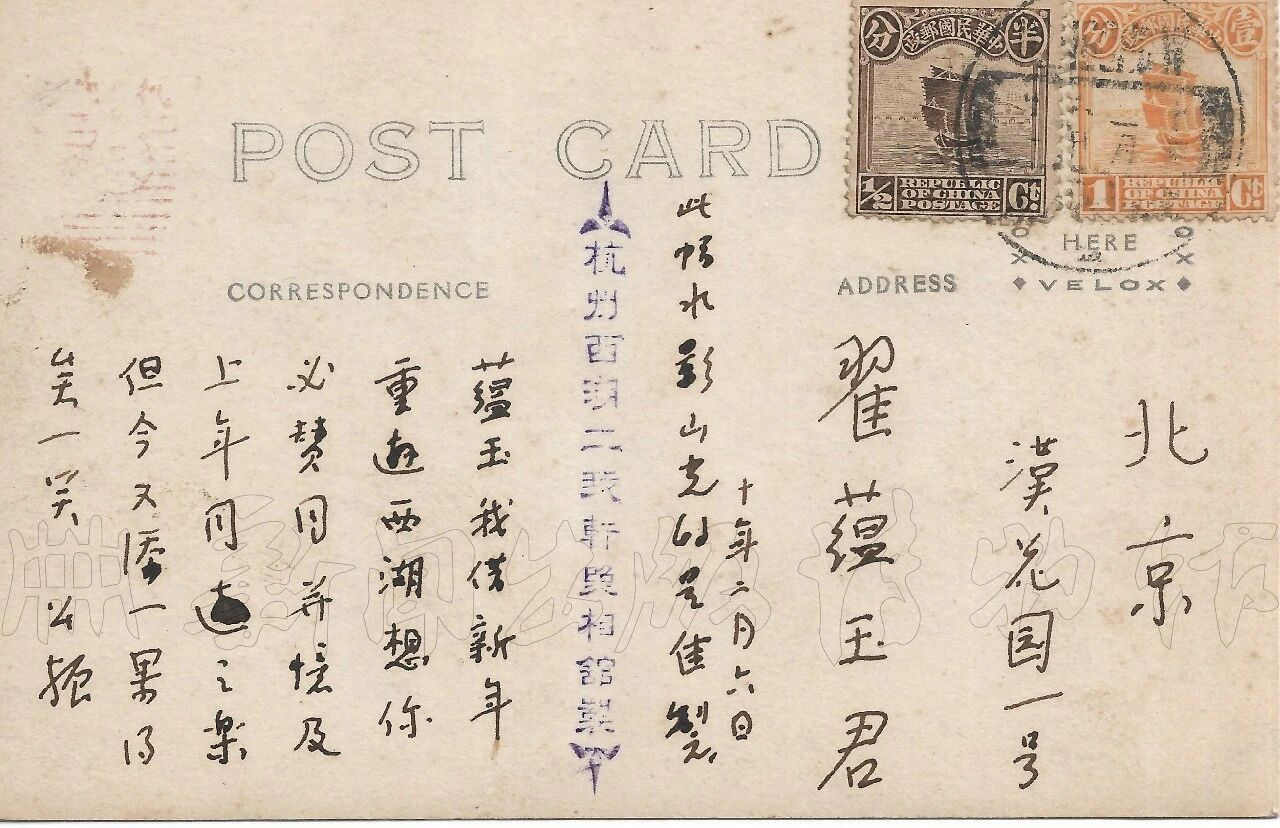 POST CARD
CORRESPONDENCE
ADDRESS
HERE
VELOX
中華民國郵政
半
分
1/2
REPUBLIC
OF CHINA
POSTAGE
Ct.
中華民國郵政
壹
分
1
REPUBLIC
OF CHINA
POSTAGE
Ct.
北京
漢花园一号
翟蕴玉君
十年二月六日
此幀水影山光的是佳製
杭州西湖二我軒照相館製
蕴玉我借新年
重遊西湖想你
必赞同并憶及
上年同遊之樂
但今又添一果乃
一笑 公振